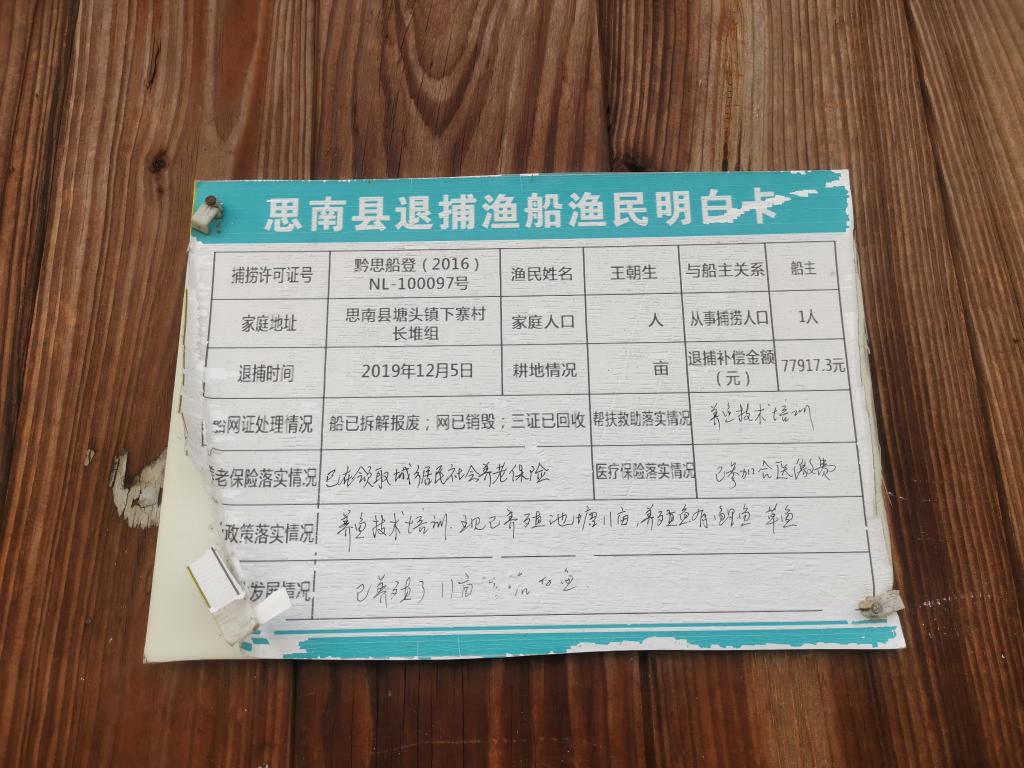 思南县退捕渔船渔民明白卡
捕捞许可证号 黔思船登（2016）NL-100097号 渔民姓名 王朝生 与船主关系 船主
家庭地址 思南县塘头镇下寨村长堆组 家庭人口 人 从事捕捞人口 1人
退捕时间 2019年12月5日 耕地情况 亩 退捕补偿金额（元） 77917.3元
网证处理情况 船已拆解报废；网已销毁；三证已回收 帮扶救助落实情况 养鱼技术培训
老保险落实情况 已在领取城乡居民社会养老保险 医疗保险落实情况 已参加合医缴费
政策落实情况 养鱼技术培训.现已养殖池塘11亩,养殖鱼有鲤鱼 草鱼
发展情况 已养殖了11亩 鱼.